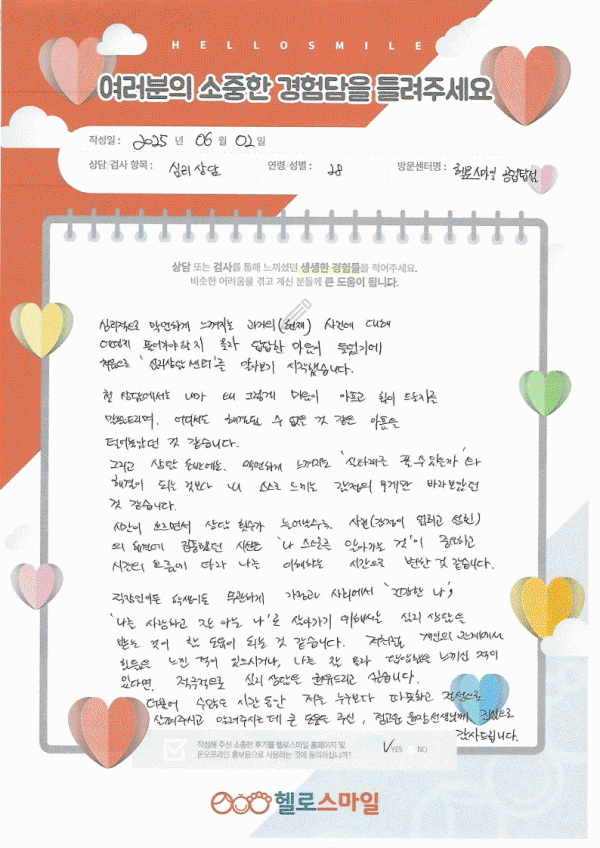 HELLOSMILE
여러분의 소중한 경험담을 들려주세요
작성일 : 2025 년 06 월 02 일
상담/검사 항목 : 심리상담 연령/성별 : 28 방문센터명 : 헬로스마일
상담 또는 검사를 통해 느끼셨던 생생한 경험들을 적어주세요.
비슷한 어려움을 겪고 계신 분들께 큰 도움이 됩니다.
심리적으로 막연하게 느껴지는 과거의(현재) 사건에 대해
어떻게 풀어가야 할지 몰라 답답한 마음이 들었기에
처음으로 '심리상담 센터'를 알아보기 시작했습니다.
첫 상담에서는 내가 왜 그렇게 마음이 아프고 힘이 드는지를
말씀드리며, 어디서도 해결될 수 없을 것 같은 아픔을
털어놓았던 것 같습니다.
그리고 상담 초반에는, 막연하게 느껴지는 '실타래를 풀 수 있는지'의
해결이 되는 것보다 내 스스로 느끼는 감정의 무게만 바라보았던
것 같습니다.
시간이 흐르면서 상담 횟수가 늘어날수록, 사건(감정이 얽히고 설킨)
의 해결에 집중됐던 시선은 '나 스스로를 알아가는 것'이 중요하고
시간의 흐름에 따라 나를 이해하는 시간으로 변한 것 같습니다.
직장인이든 학생이든 무관하게 가정과 사회에서 '건강한 나',
'나를 사랑하고 잘 아는 나'로 살아가기 위해서는 심리 상담을
받는 것이 참 도움이 되는 것 같습니다. 저처럼 개인의 관계에서
힘듦을 느낀 적이 있으시거나, 나를 잘 몰라 답답함을 느끼신 적이
있다면, 적극적으로 심리 상담을 권유드리고 싶습니다.
더불어 수많은 시간 동안 저를 누구보다 따뜻하고 진심으로
살펴주시고 알려주시는데 큰 도움을 주신, 선생님께 진심으로
감사드립니다.
작성해 주신 소중한 후기를 헬로스마일 홈페이지 및
온오프라인 홍보용으로 사용하는 것에 동의하십니까?
YES NO
헬로스마일